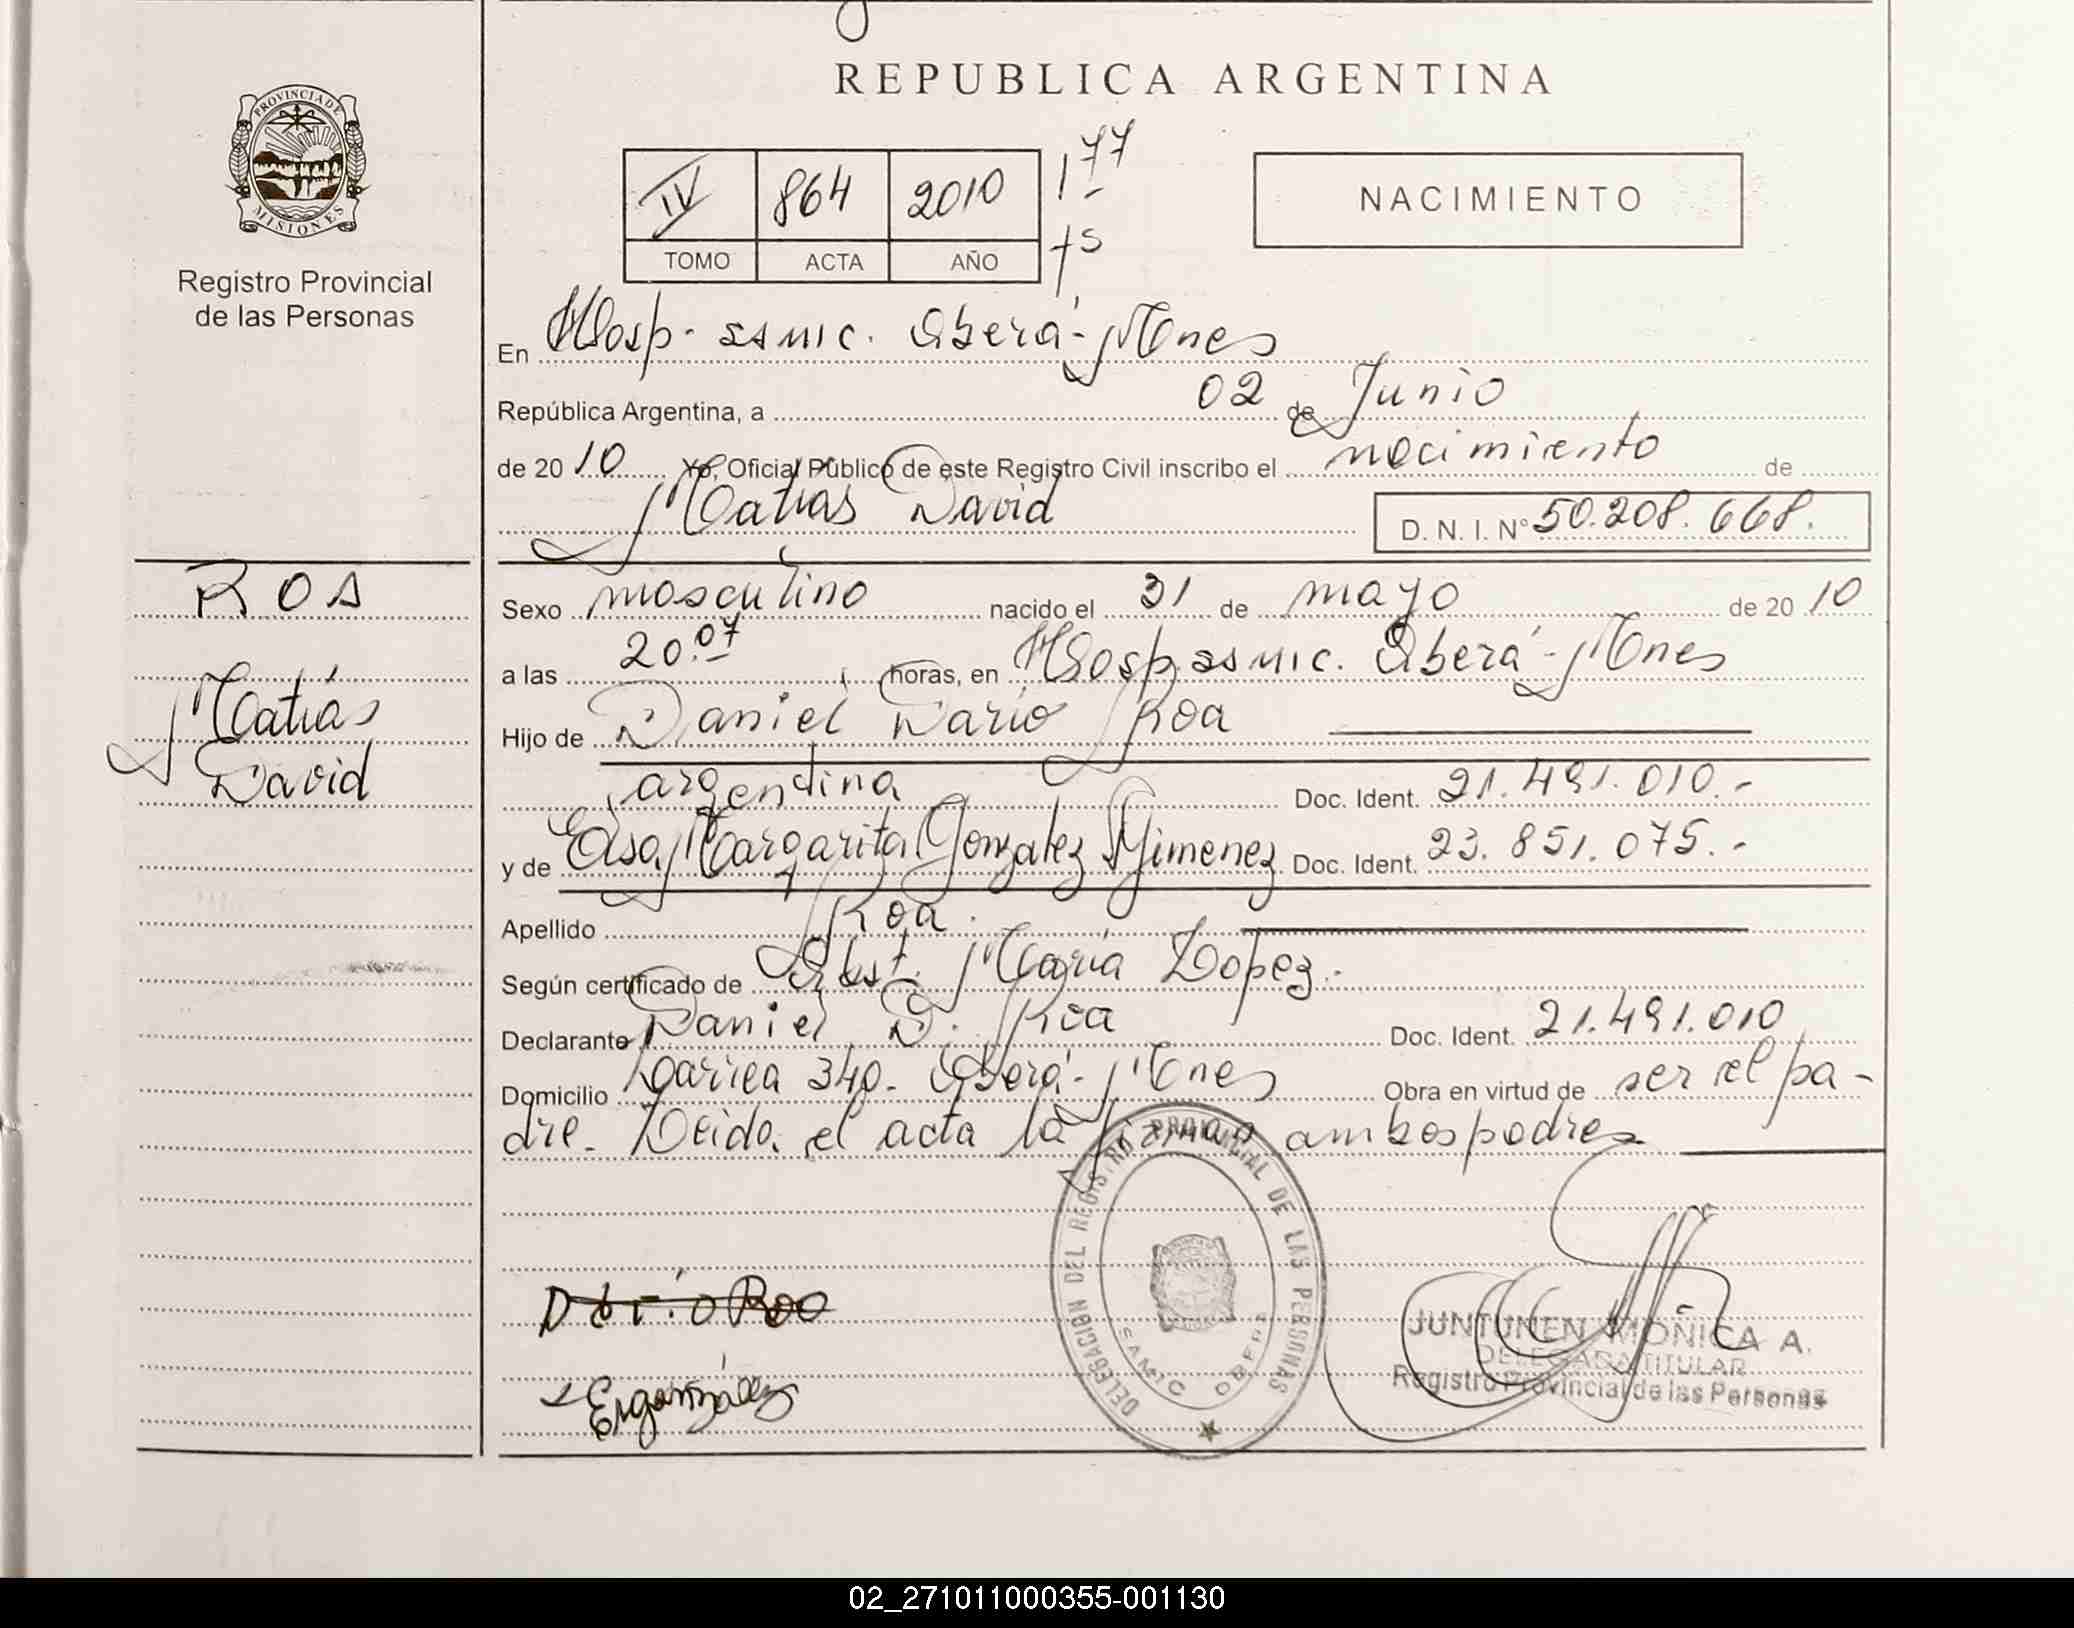 REPUBLICA ARGENTINA
PROVINCIA DE
MISIONES
Registro Provincial
de las Personas
IV 864 2010 177
TOMO ACTA AÑO
NACIMIENTO
En Hosp. ssmic. Oberá - Mnes
República Argentina, a 02 de Junio
de 20 10 Yo, Oficial Público de este Registro Civil inscribo el nacimiento de
Matias David D. N. I. N° 50.208.668.
ROA
Matías
David
Sexo masculino nacido el 31 de mayo de 20 10
a las 20.07 horas, en Hosp. ssmic. Oberá - Mnes
Hijo de Daniel Dario Roa
argentina Doc. Ident. 21.491.010.-
y de Elsa Margarita Gonzalez Gimenez Doc. Ident. 23.851.075.-
Apellido Roa.
Según certificado de Obst. María Lopez.
Declarante Daniel D. Roa Doc. Ident. 21.491.010
Domicilio Larrea 340. Oberá - Mnes Obra en virtud de ser el pa-
dre. Leida el acta la firman ambos padres
DELEGACION DEL REGISTRO PROVINCIAL DE LAS PERSONAS
SAMIC OBERA
Darío Roa
JUNTUNEN MONICA A.
DELEGADA TITULAR
Registro Provincial de las Personas
E gonzález
02_271011000355-001130